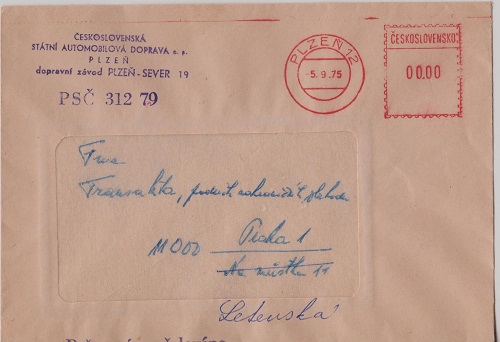 ČESKOSLOVENSKÁ
STÁTNÍ AUTOMOBILOVÁ DOPRAVA n. p.
PLZEŇ
dopravní závod PLZEŇ-SEVER 19
PSČ 312 79
PLZEŇ 12
5.9.75
ČESKOSLOVENSKO
00.00
Fma
Transakta,
11000 Praha 1
Na můstku 11
Letenská